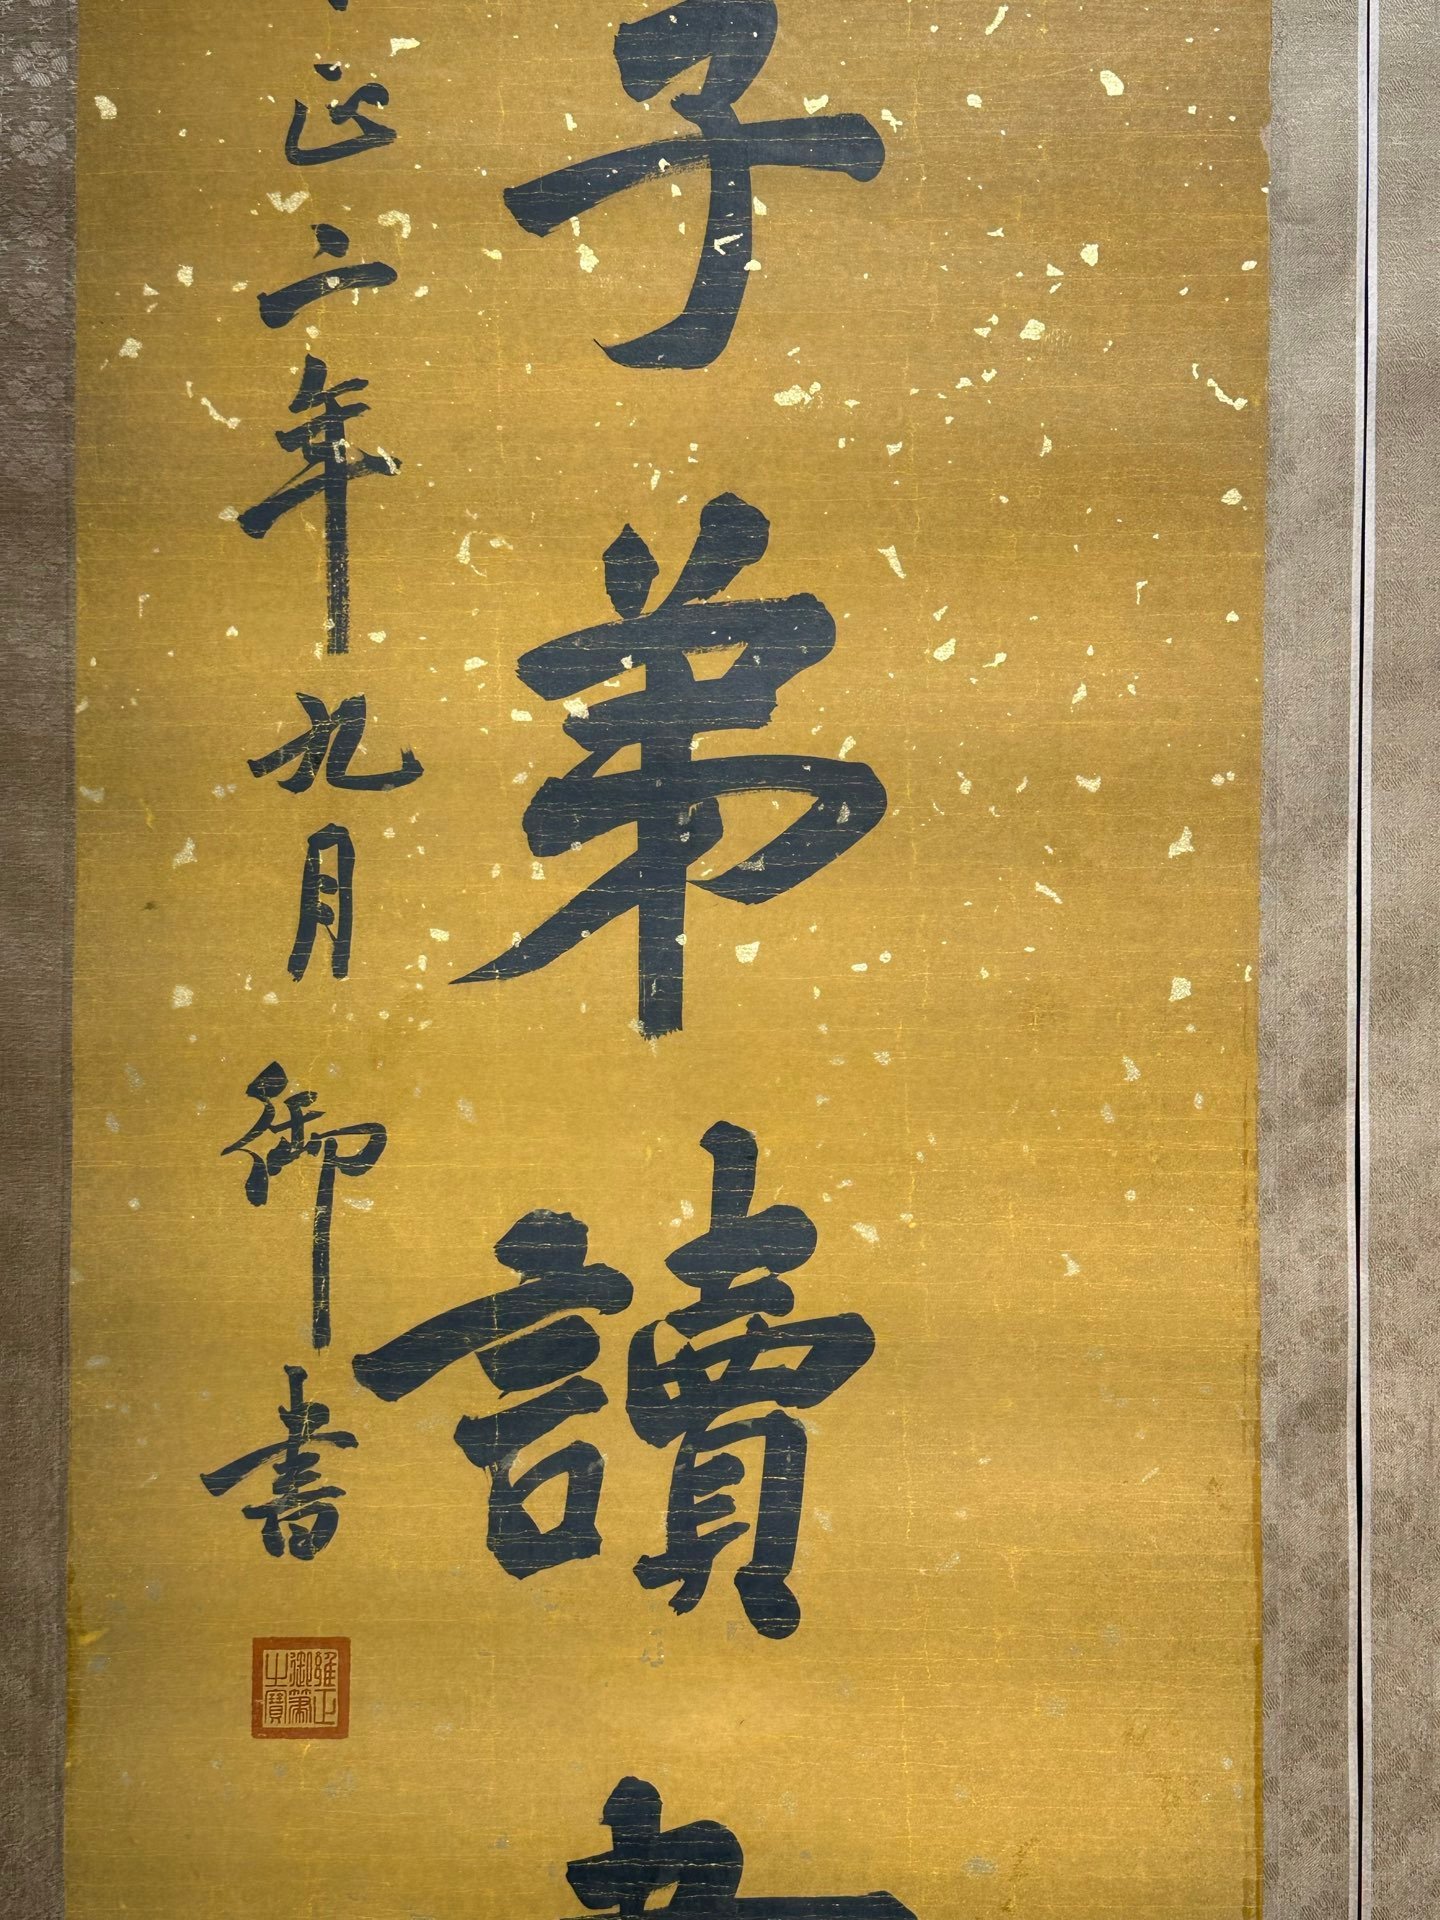 子弟讀
正二年九月御書
雍正御筆之寶